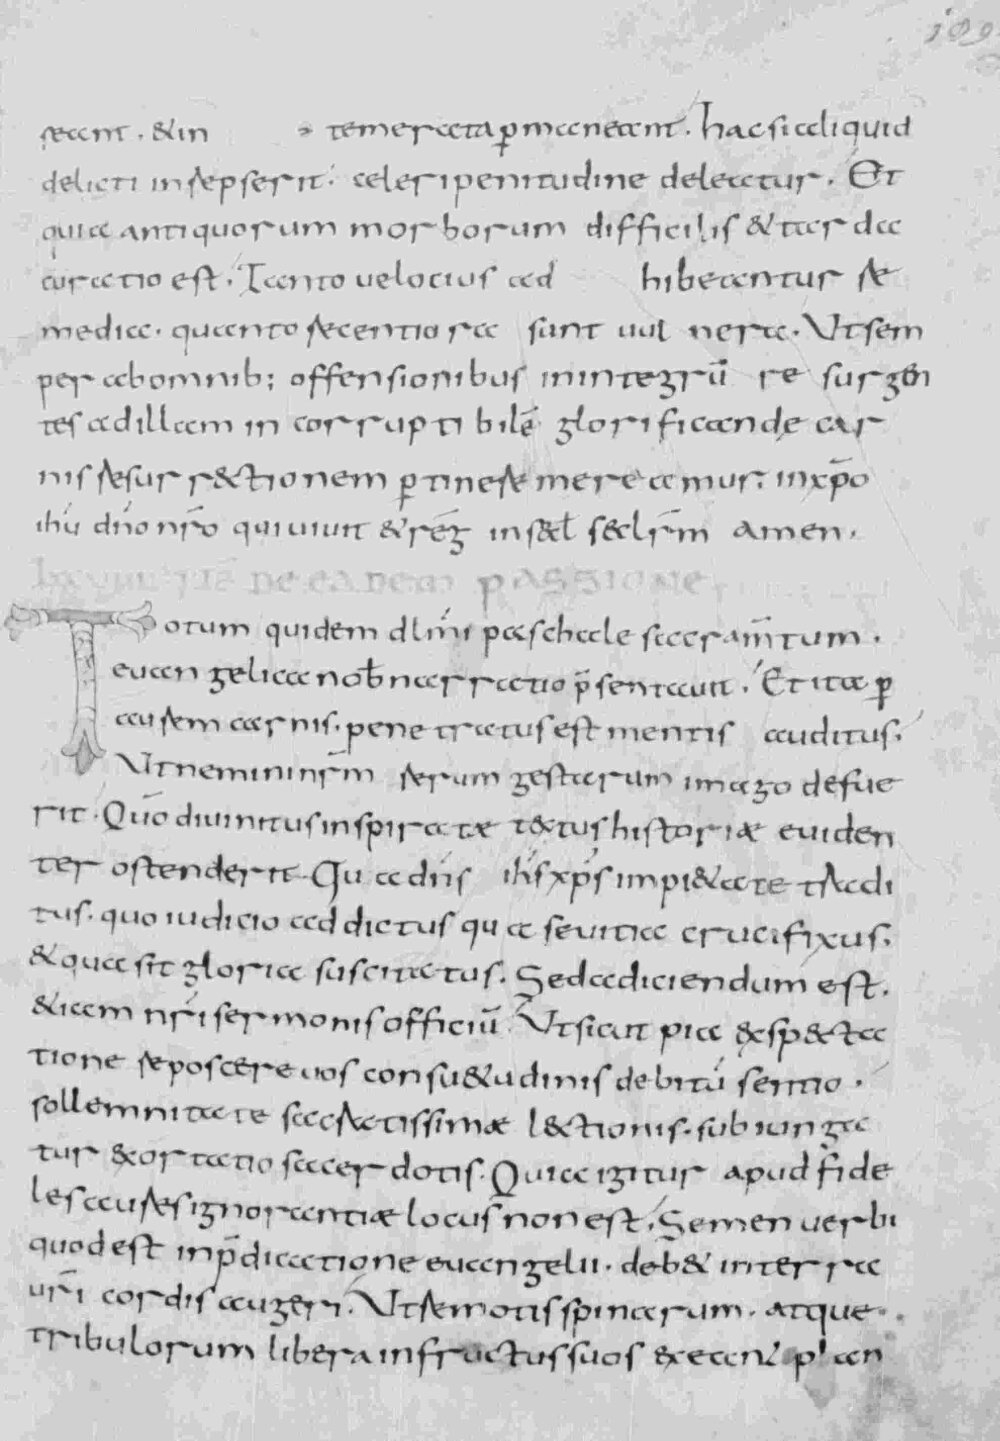 109
recant · & in temerata ꝑmaneant · hac si aliquid
delicti in repserit · celeri penitudine deleatur · Et
quia antiquorum morborum difficilis & tarda
curatio est · Tanto velocius ad hibeantur re
media · quanto recentiora sunt uulnera · Ut sem
per ab omnib; offensionibus in integrū re surgen
tes ad illam in corruptibilē glorificande car
nis resurr&tionem ꝑtinere mereamur · in xp̄o
ihū dn̄o nr̄o qui uiuit & rēg in sæcl sæclr̄m amen ·
de eadem passione
Totum quidem dl̄mi paschale sacram̄tum ·
euangelica nob̄ narratio p̄sentauit · Et ita ꝑ
aurem carnis · penetratus est mentis auditus ·
Ut nemini nr̄m rerum gestarum imago defue
rit · Quō diuinitus inspiratæ textus historiæ euiden
ter ostenderit · Qua dn̄s ih̄s xp̄s impi&ate tradi
tus · quo iudicio addictus qua seuitia crucifixus ·
& qua sit gloria suscitatus · Sed adiciendum est ·
&iam nr̄i sermonis officiū · Ut sicut pia exsp&ta
tione reposcere uos consu&udinis debitū sentio ·
sollemnitate sacratissimæ l&tionis · subiunga
tur exortatio sacerdotis · Quia igitur apud fide
les aures ignorantiæ locus non est · Semen uerbi
quod est in p̄dicatione euangelii · deb& inter ra
ur̄i cordis augeri · Ut remotis spinarum · atque
tribulorum libera in fructus suos execan̄ pl an